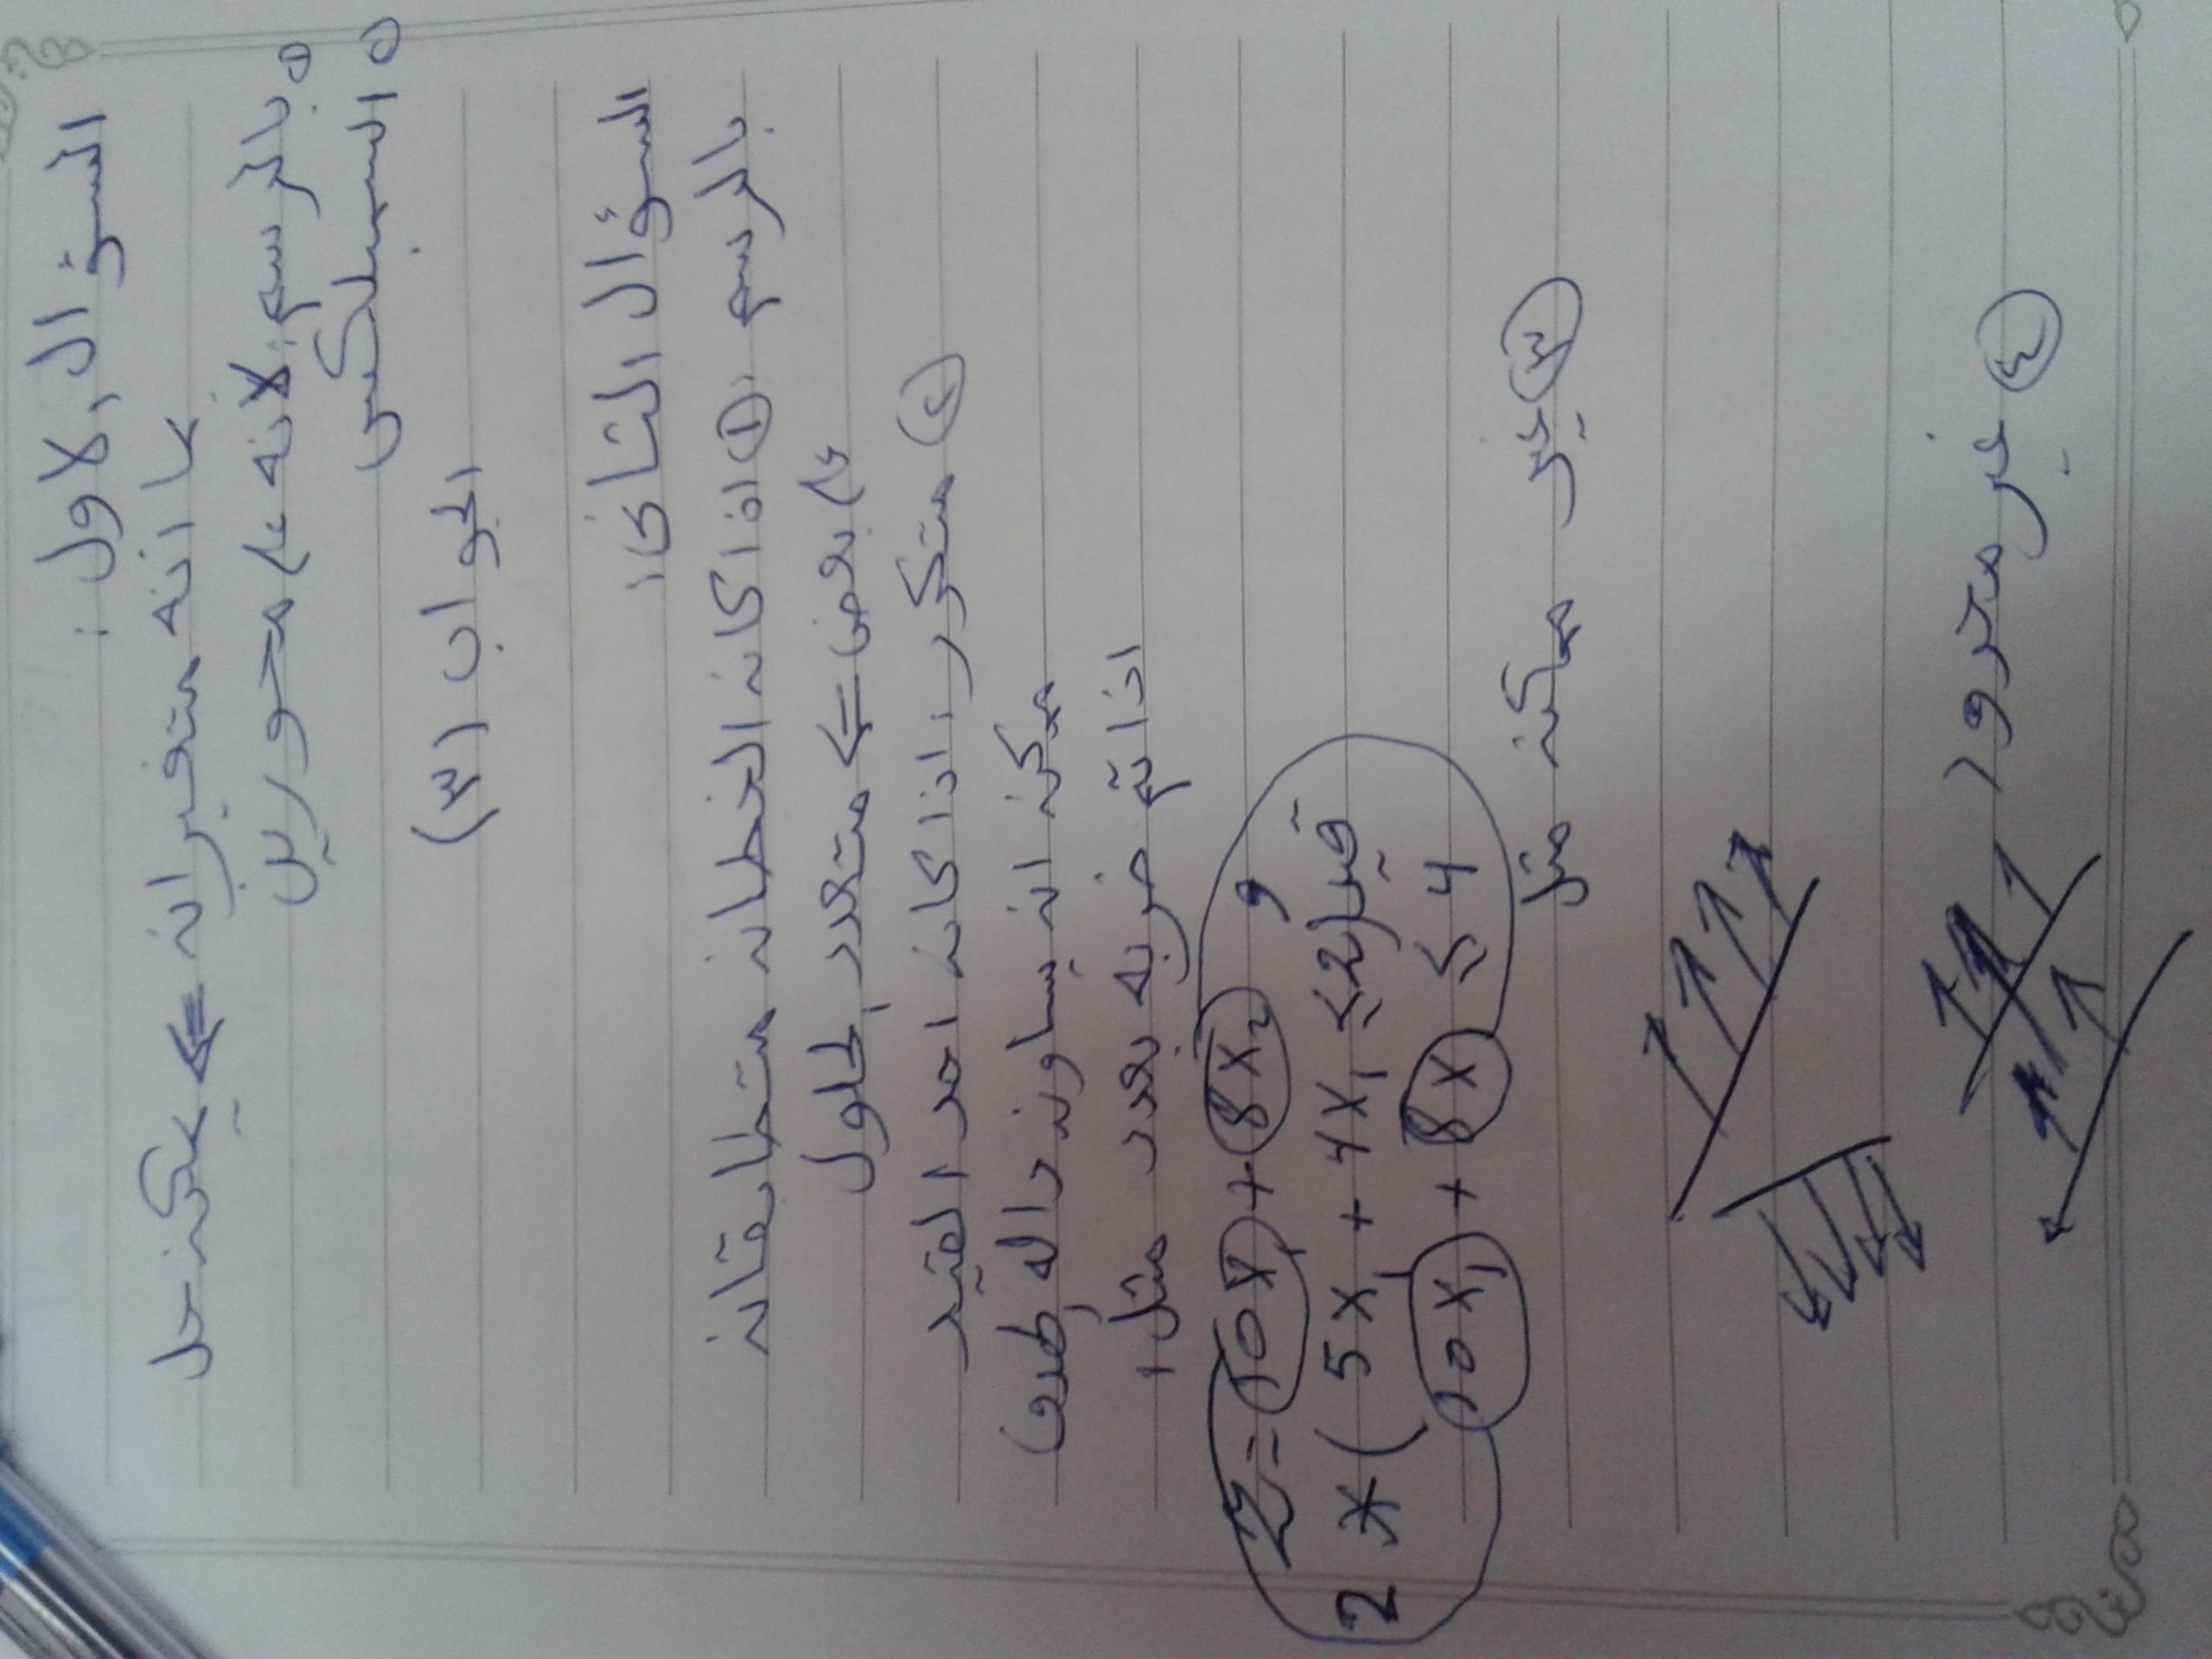 السؤال الاول :
بما انه متغيران ⇐ يمكن حل
○ بالرسم: لانه ع محورين
○ السمبلكس
الجواب (٣)
السؤال الثاني :
بالرسم : ① اذا كان الخطان متطابقان
ع بعض ⇐ متعدد الحلول
② متكرر : اذا كان احد القيد
ممكن ان يساوي داله الهدف
اذا تم ضربه بعدد مثل :
Z = 10X1 + 8X2 و
2 * ( 5X1 + 4X1 ≤ 2) قيد
10X1 + 8X1 ≤ 4
③ غير ممكن مثل
④ غير محدود